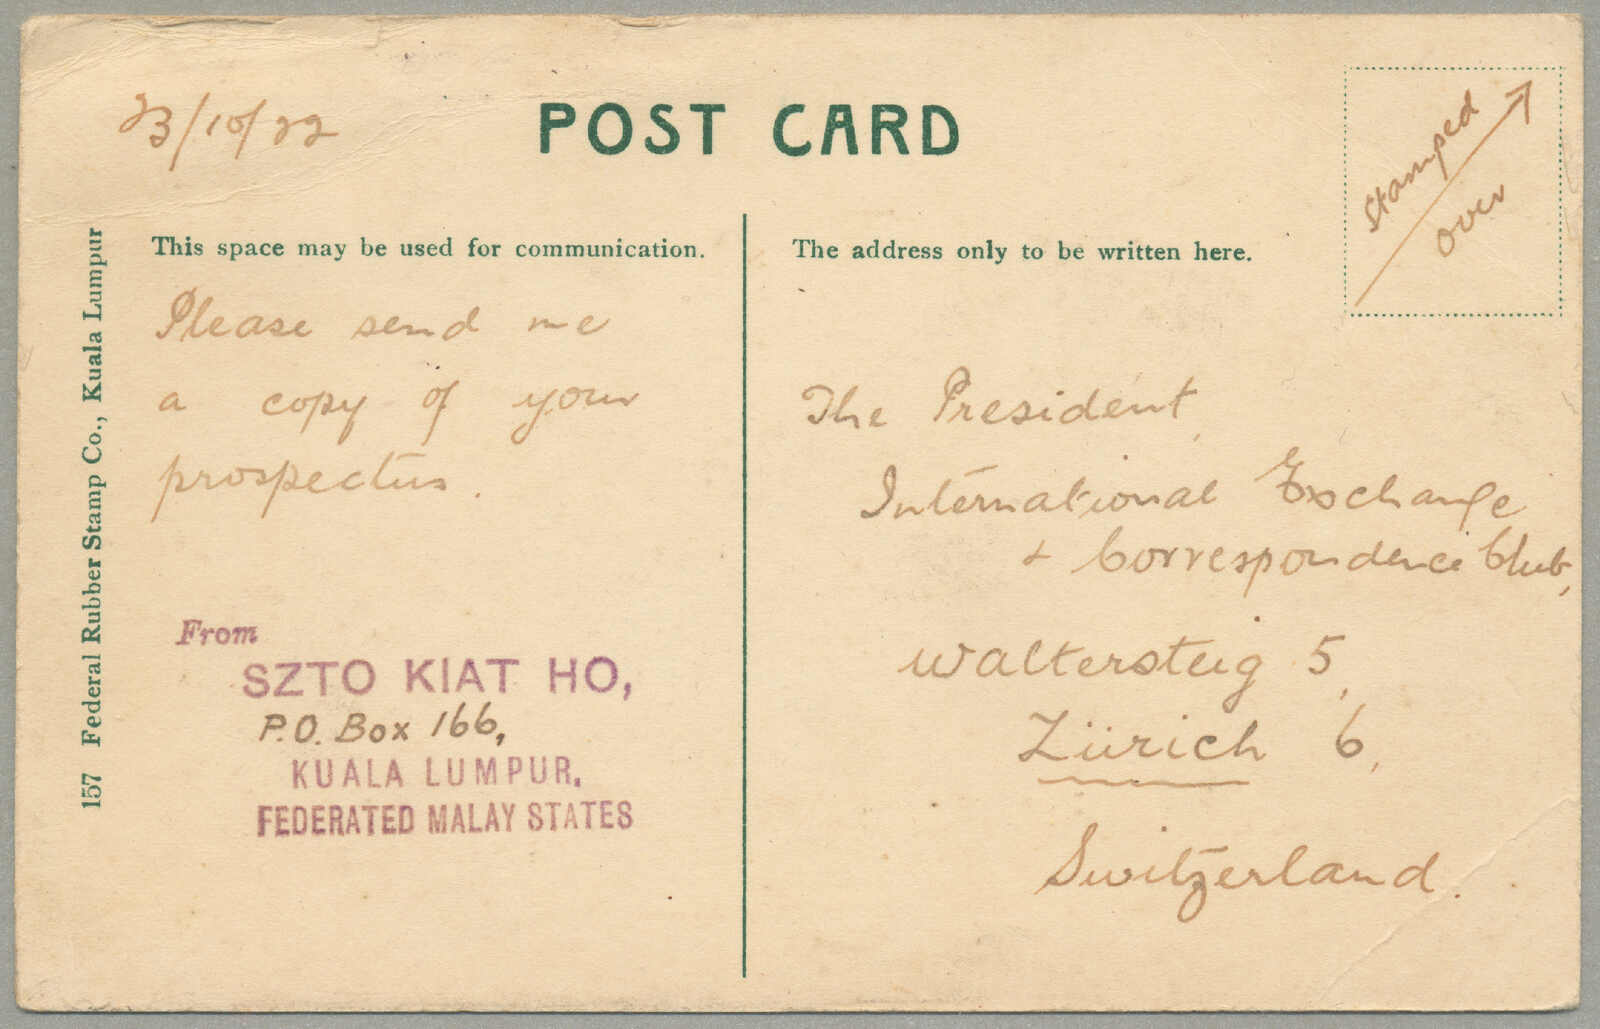 23/10/22
POST CARD
Stamped
over
157 Federal Rubber Stamp Co., Kuala Lumpur
This space may be used for communication.
Please send me
a copy of your
prospectus.
From
SZTO KIAT HO,
P.O. Box 166,
KUALA LUMPUR.
FEDERATED MALAY STATES
The address only to be written here.
The President,
International Exchange
& Correspondence Club,
Waltersteig 5,
Zürich 6,
Switzerland.